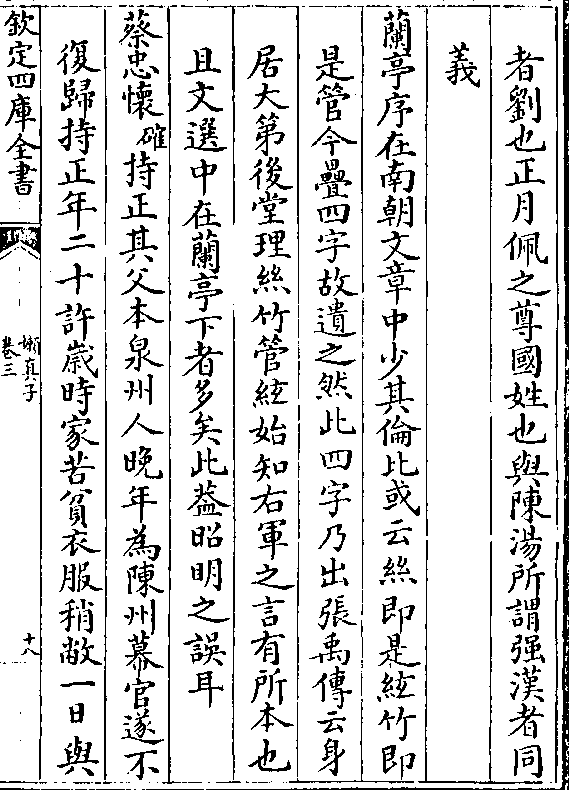 者劉也正月佩之尊國姓也與陳湯所謂强漢者同
義
蘭亭序在南朝文章中少其倫比或云絲即是絃竹即
是管今疊四字故遺之然此四字乃出張禹傳云身
居大第後堂理絲竹管絃始知右軍之言有所本也
且文選中在蘭亭下者多矣此葢昭明之誤耳
蔡忠懷確持正其父本泉州人晚年為陳州幕官遂不
復歸持正年二十許嵗時家苦貧衣服稍敝一日與
欽定四庫全書
嬾真子
卷三
十八